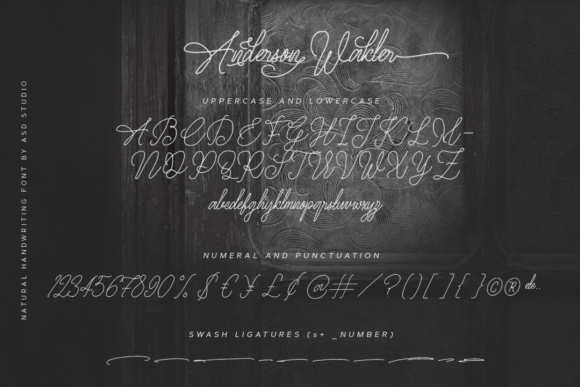 Anderson Wakler
UPPERCASE AND LOWERCASE
ABCDEFGHIJKLM-
NOPQRSTUVWXYZ
abcdefghijklmnopqrstuvwxyz
NUMERAL AND PUNCTUATION
1234567890% $ € ¥ £ ¢ @ # / ? ( ) [ ] { } © ® etc..
SWASH LIGATURES (s+ _NUMBER)
NATURAL HANDWRITING FONT BY ASD STUDIO